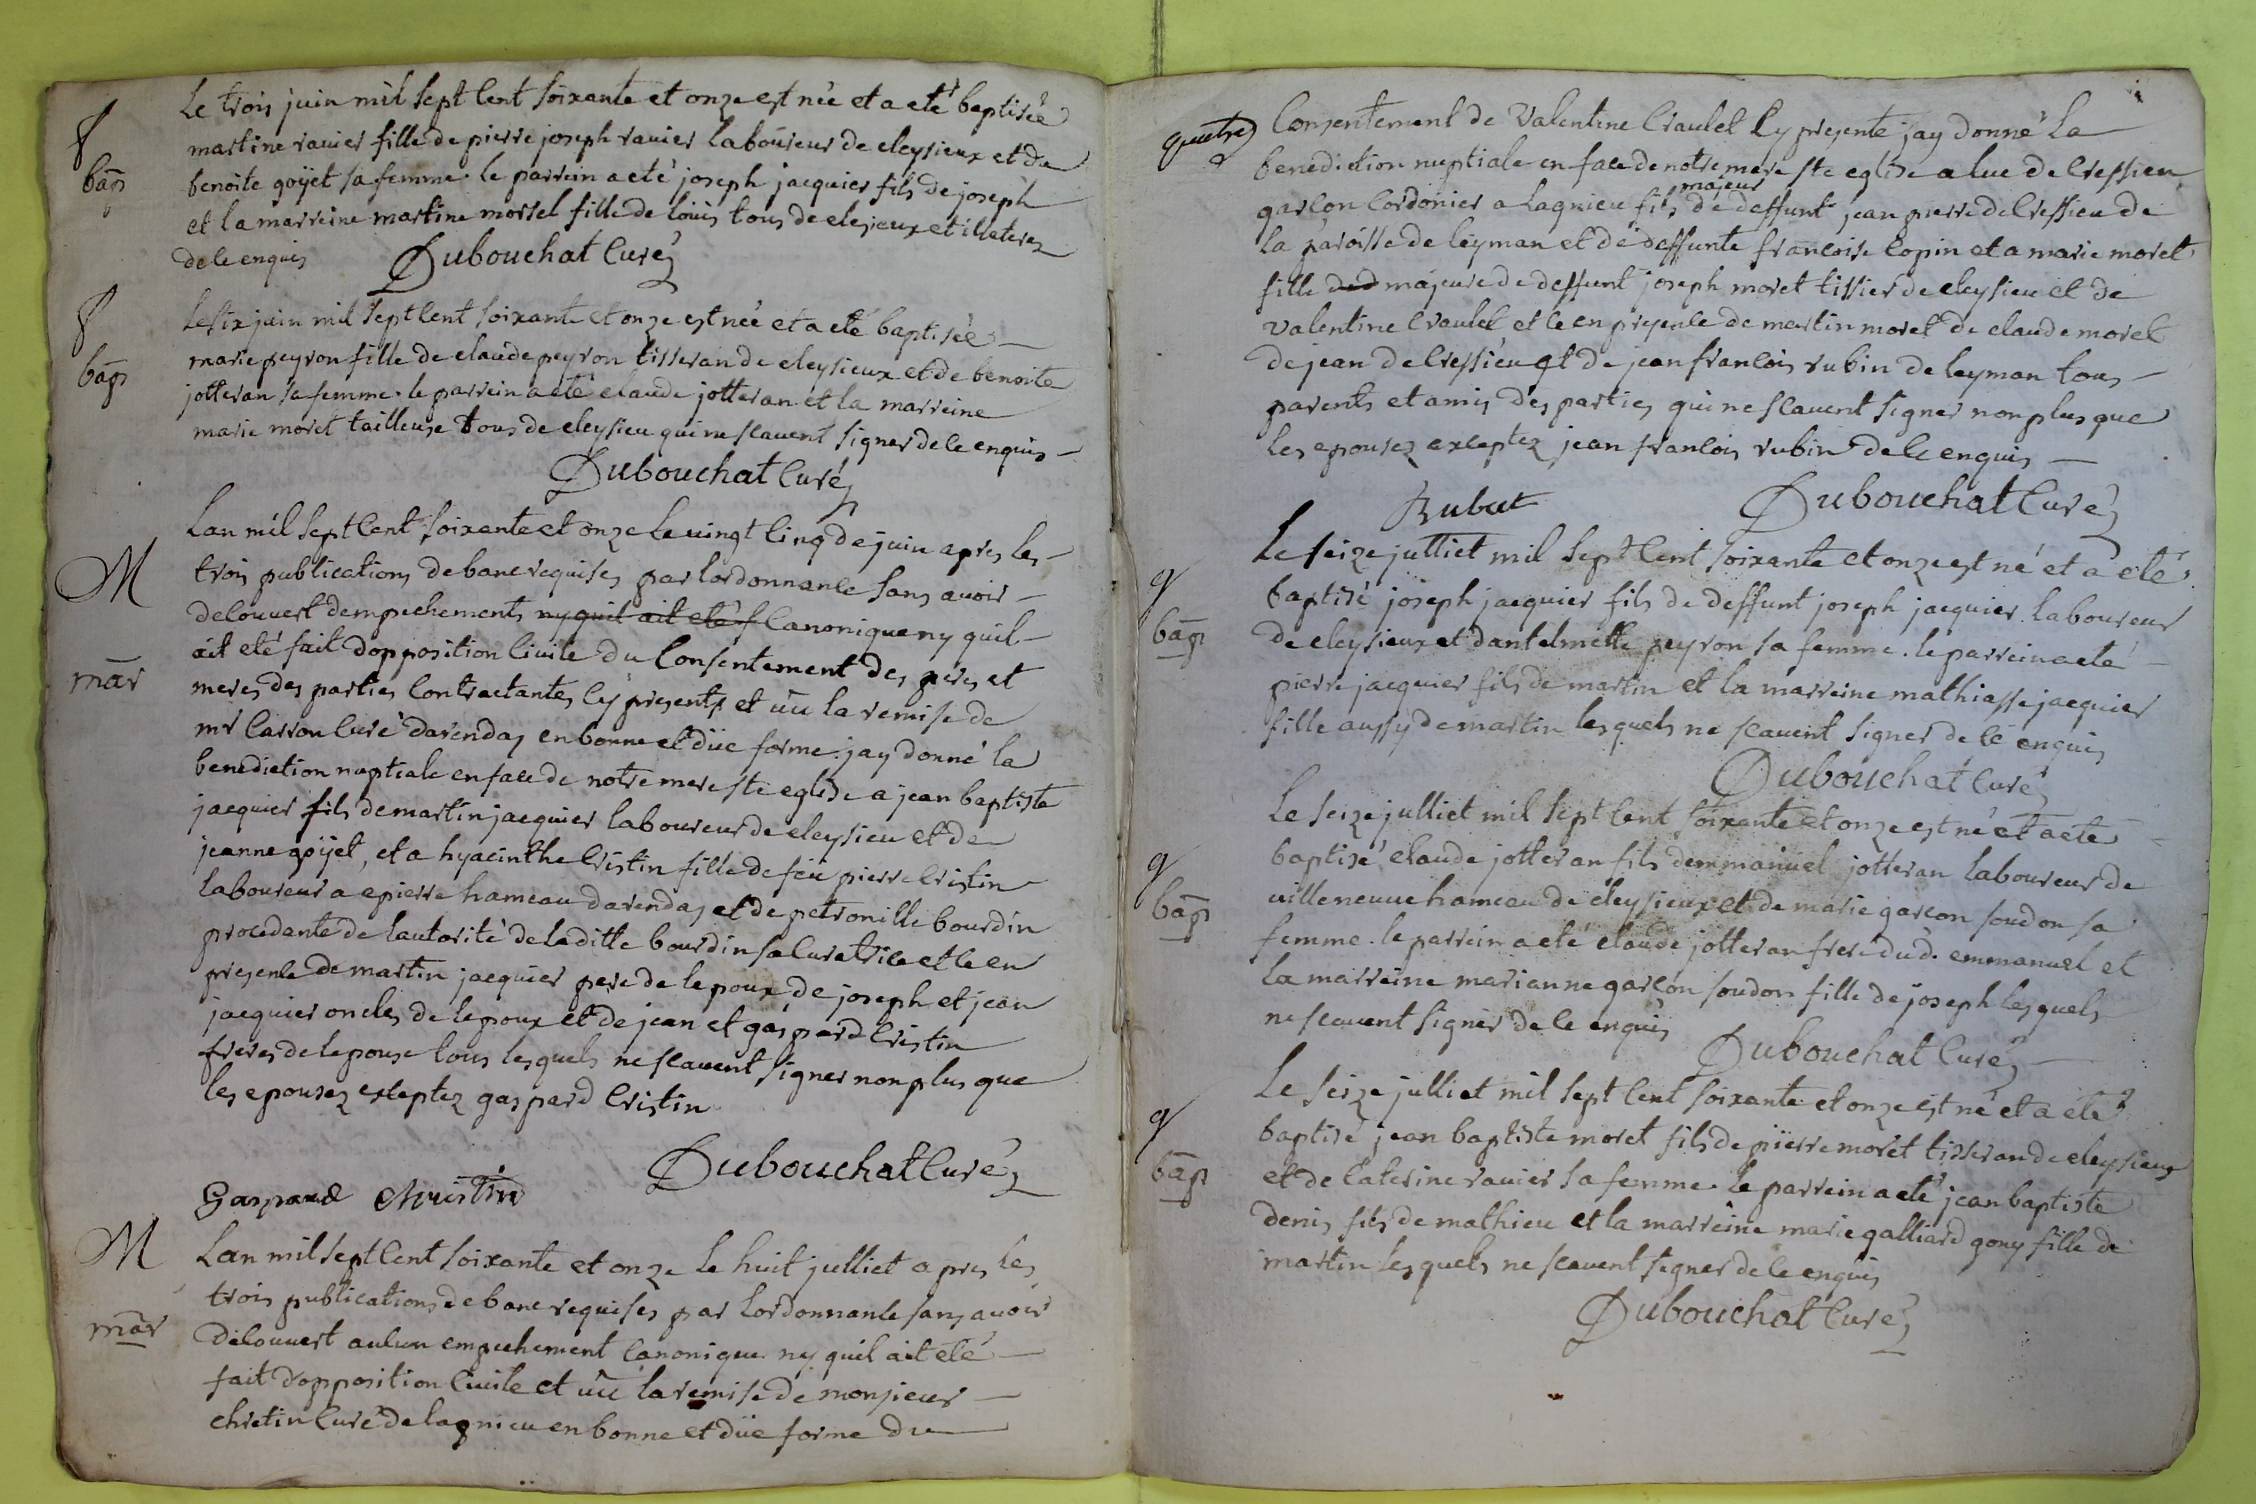 Le trois juin mil sept cent soixante et onze est née et a eté baptisée
f
martine ravier fille de pierre joseph ravier laboureur de cleysieux et de
bap
benoite goÿet sa femme. le parrein a eté joseph jacquier fils de joseph
et la marreine martine morsel fille de louis tous de clesieux et illeterez
de ce enquis
Dubouchat Curé
f
Le six juin mil sept cent soixante et onze est née et a eté baptisée
marie peyron fille de claude peyron tisseran de cleysieux et de benoite
bap
jotteran sa femme. le parrein a eté claude jotteran et la marreine
marie moret tailleuse tous de cleysieu qui ne scavent signer de ce enquis
Dubouchat Curé
Lan mil sept cent soixante et onze le vingt cinq de juin apres les
M
trois publications de banc requises par lordonnance sans avoir
decouvert dempechements ny quil ait eté f Canonique ny quil
ait eté fait dopposition Civile du Consentement des peres et
mar
meres des parties Contractantes cy presents et vü la remise de
mr Carron Curé darendas en bonne et düe forme. jay donné la
benediction nuptiale en face de notre mere ste eglise a jean baptiste
jacquier fils de martin jacquier laboureur de cleysieu et de
jeanne goÿet, et a hyacinthe Cristin fille de feu pierre Cristin
laboureur a epierre hameau darendas et de petronille bourdin
procedante de lautorité de laditte bourdin sa Curatrice et ce en
presence de martin jacquier pere de lepoux de joseph et jean
jacquier oncles de lepoux et de jean et gaspard Cristin
freres de lepouse tous lesquels ne scavent signer non plus que
les epousez exceptez gaspard Cristin
Dubouchat Curé
Gaspard Christin
M
Lan mil sept cent soixante et onze le huit julliet apres les
trois publications de banc requises par lordonnance sans avoir
mar
decouvert aucun empechement Canonique ny quil ait eté
fait dopposition Civile et vü la remise de monsieur
chretin Curé de lagnieu en bonne et düe forme du
quatre
Consentement de Valentine Craulet Cy presente jay donné la
benediction nuptiale en face de notre mere ste eglise a luc de Cressieu
majeur
garcon Cordonier a Lagnieu fils de deffunt jean pierre de Cressieu de
la paroisse de leyman et de deffunte francoise Copin et a marie moret
fille ded majeure de deffunt joseph moret tissier de cleysieu et de
Valentine Craulet et ce en presence de martin moret de claude moret
de jean de Cressieu et de jean francois rubin de leyman tous
parents et amis des parties qui ne scavent signer non plus que
les epousez exceptez jean francois rubin de ce enquis
Dubouchat Curé
Le seize julliet mil sept cent soixante et onze est né et a eté
g
baptisé joseph jacquier fils de deffunt joseph jacquier laboureur
bap
de cleysieux et dantelmette peyron sa femme. le parrein a eté
pierre jacquier fils de martin et la marreine mathiasse jacquier
fille aussy de martin lesquels ne scavent signer de ce enquis
Dubouchat Curé
Le seize julliet mil sept cent soixante et onze est né et a eté
g
baptisé claude jotteran fils demmanuel jotteran laboureur de
bap
villeneuve hameau de cleysieux et de marie garcon soudon sa
femme. le parrein a eté claude jotteran frere dud. emmanuel et
la marreine marianne garcon soudon fille de joseph lesquels
ne scavent signer de ce enquis
Dubouchat Curé
Le seize julliet mil sept cent soixante et onze est né et a eté
g
baptisé jean baptiste moret fils de pierre moret tisseran de cleysieux
bap
et de Caterine ravier sa femme. le parrein a eté jean baptiste
denis fils de mathieu et la marreine marie galliard gony fille de
martin lesquels ne scavent signer de ce enquis
Dubouchat Curé